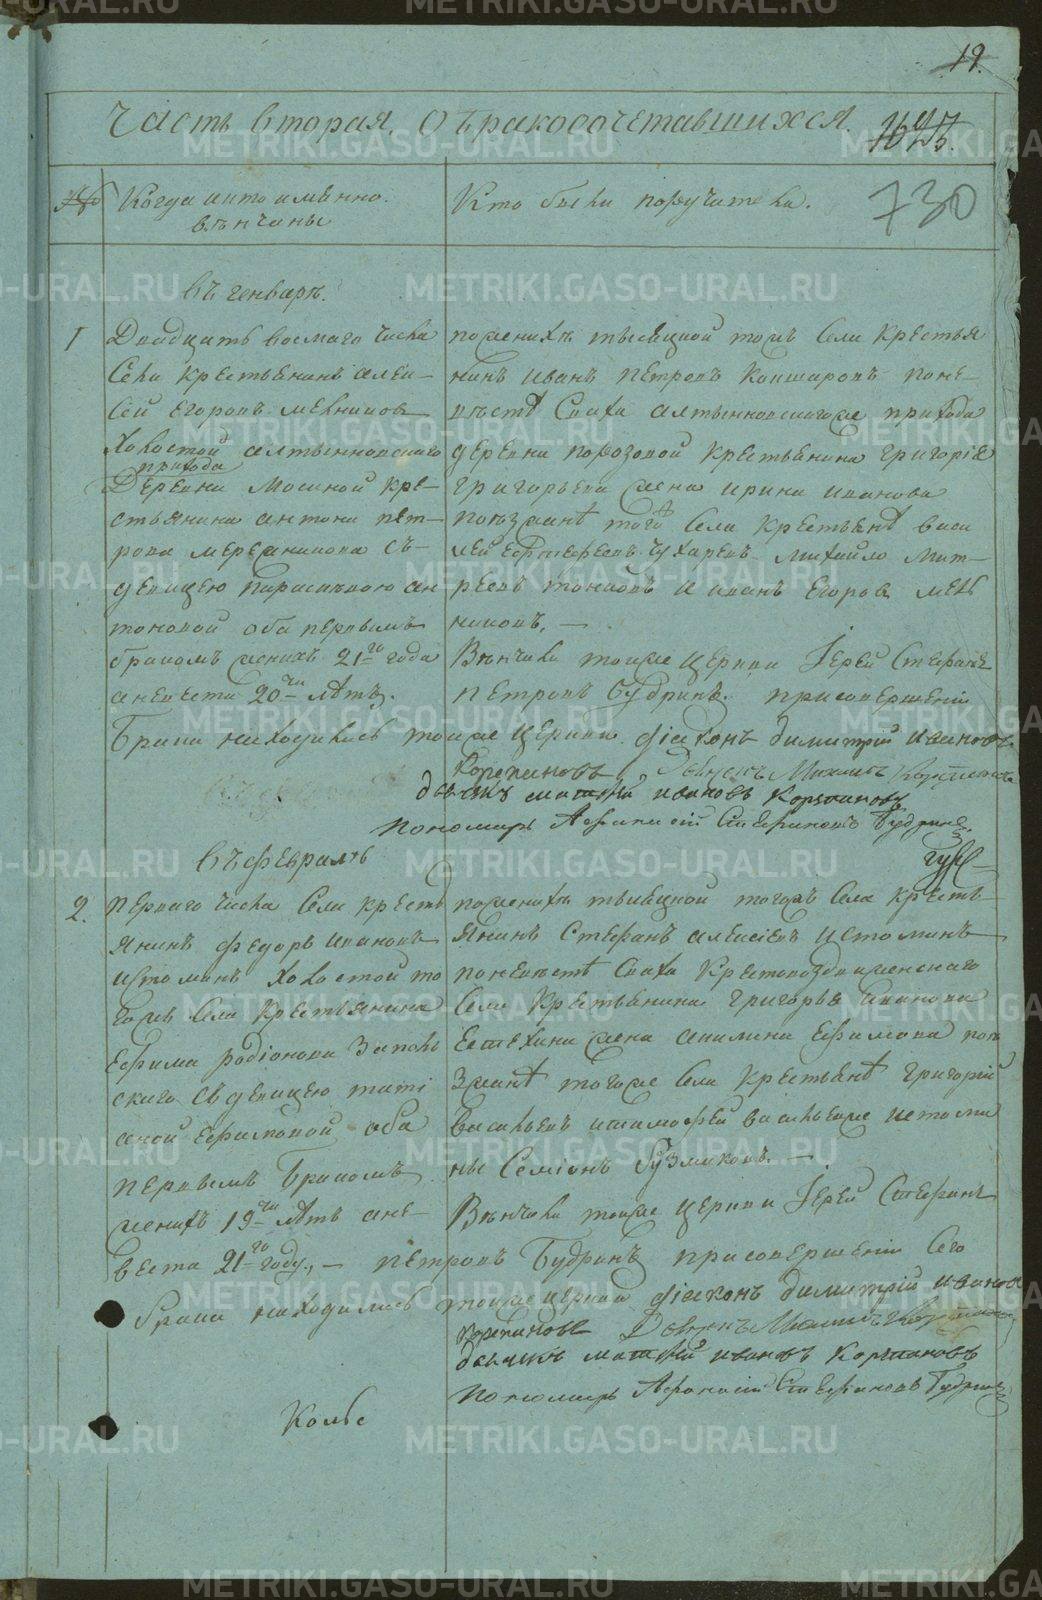 19.
Часть вторая, О бракосочетавшихся.
730
№ Когда и кто именно
вѣнчаны
Кто были поручители.
въ генварѣ.
1 Двадцать восмаго числа
Села крестьянинъ Алек-
сѣй Егоровъ Мелниковъ
холостой Алтынновскаго
прихода
Деревни Мосиной кре-
стьянина Антона Пет-
рова Мерзаникова съ
девицею Параскевою Ан
тоновой оба первымъ
бракомъ женихъ 21го года
а невеста 20ти лѣтъ.
по женихѣ тысецкой тожъ Села Крестья
нинъ Иванъ Петровъ Кошкаровъ по не-
вѣстѣ Сваха Алтынновскагоже прихода
деревни Порозовой Крестьянина Григорія
Григорьева жена Ирина Иванова
поѣзжанѣ того Села Крестьянѣ Васи
лей Ефтефеевъ Чухаревъ Михайло Мит-
реевъ и Иванъ Егоровъ Мел
никовъ. —
Вѣнчали тояже церкви Іерей Стефанъ
Петровъ Будринъ. при совершеніи
брака находились тояже церкви діаконъ Димитрій Ивановъ
Корепановъ
дьячкъ Матфей Ивановъ Корепановъ
Пономарь Афанасій Стефановъ Будринъ.
въ февралѣ
2. перваго числа Села кресть
янинъ Федоръ Ивановъ
Истоминъ холостой то
гожъ Села Крестьянина
Ефима Родіонова Заполь
скаго съ девицею Таті
аной Ефимовой оба
первымъ бракомъ
женихъ 19ти лѣтъ а не-
веста 21го году, —
по женихѣ тысецкой тогожъ Села кресть-
янинъ Стефанъ Алексіевъ Истоминъ
по невѣстѣ Сваха Крестовоздвиженскаго
Села Крестьянина Григорья Иванова
жена Акилина Ефимова поѣ
зжанѣ тогоже Села Крестьянѣ Григорій
Васильевъ и Тимофей Васильевъ Истоми
ны Семіонъ Гузмиковъ. —
Вѣнчали тояже церкви Іерей Стефанъ
Петровъ Будринъ при совершеніи Сего
брака находились тояже церкви діаконъ Димитрій Ивановъ
Корепановъ
дьячкъ Матфей Ивановъ Корепановъ
Пономарь Афанасій Стефановъ Будринъ
METRIKI.GASO-URAL.RU